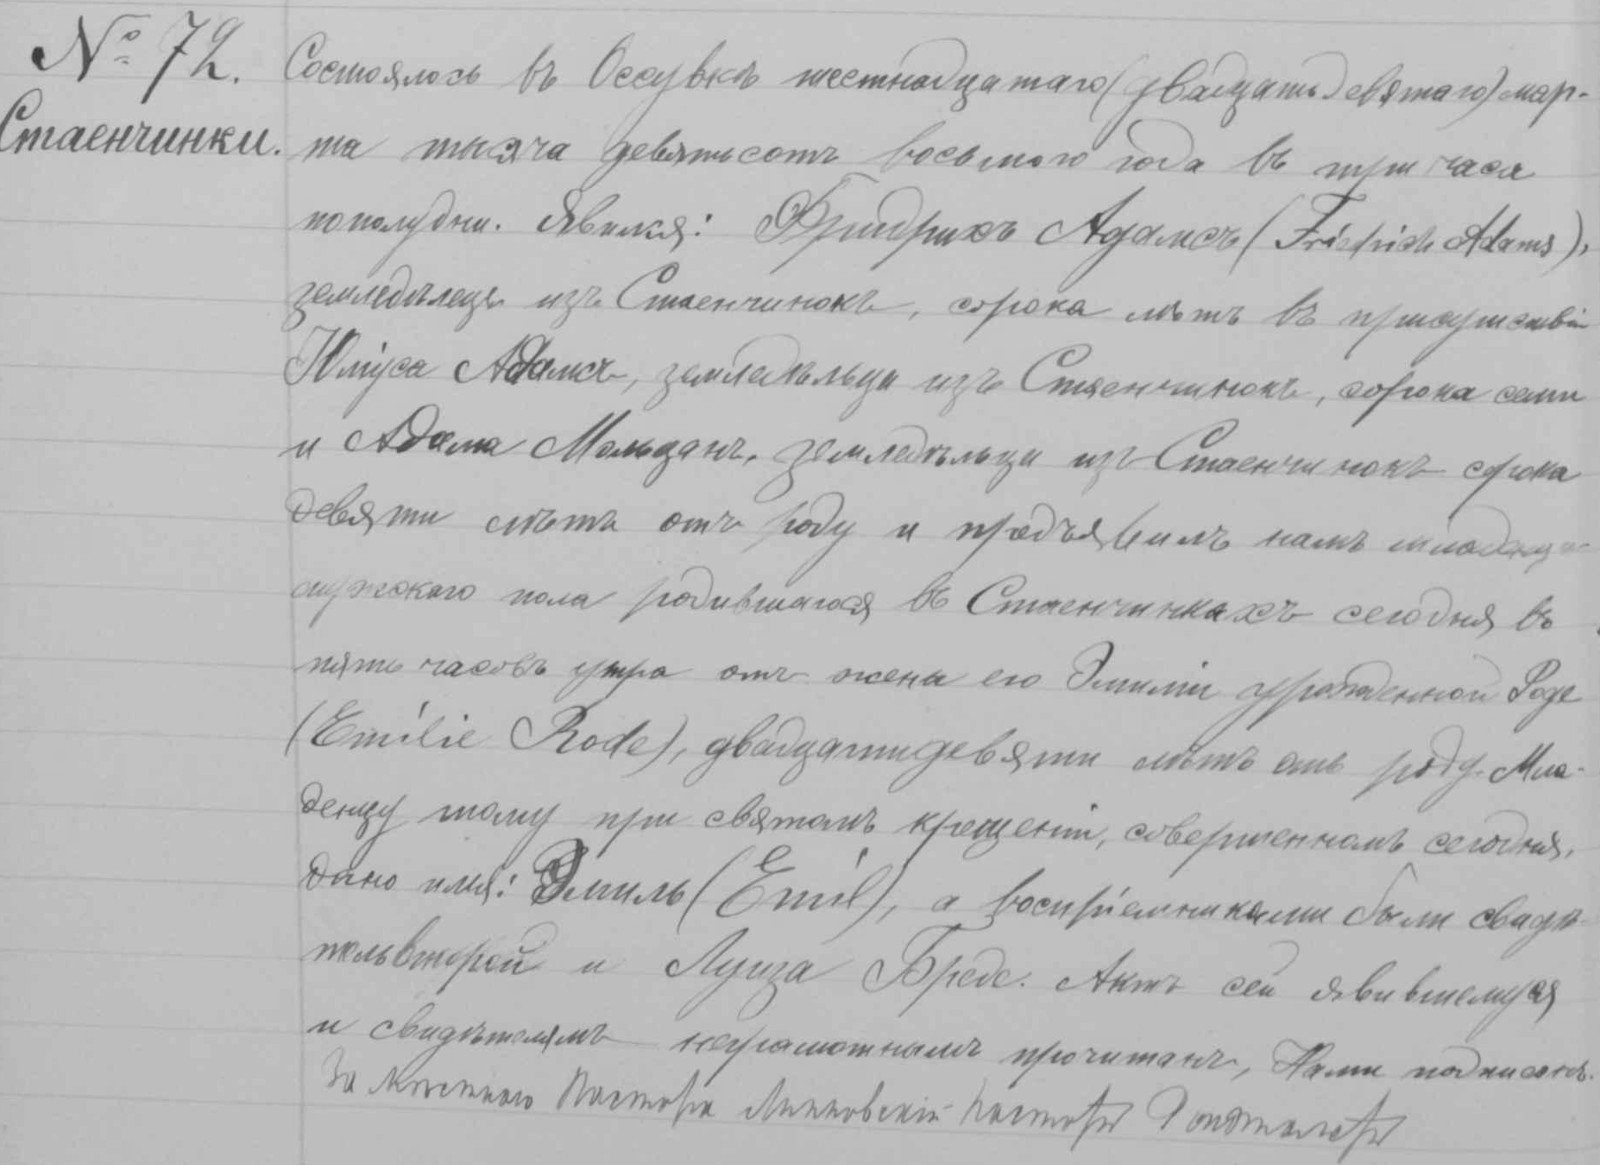 № 72.
Стаенчинки.
Состоялось въ Оссувкѣ шестнадцатаго (двадцать девятаго) мар-
та тысяча девятьсотъ восьмого года въ три часа
пополудни. Явился: Фридрихъ Адамсъ (Friedrich Adams),
земледѣлецъ изъ Стаенчинокъ, сорока лѣтъ въ присутствіи
Юліуса Адамсъ, земледѣльца изъ Стаенчинокъ, сорока семи
и Адама Мельцанъ, земледѣльца изъ Стаенчинокъ сорока
девяти лѣтъ отъ роду и предъявилъ намъ младенца
мужскаго пола родившагося въ Стаенчинкахъ сегодня въ
пять часовъ утра отъ жены его Эмиліи урожденной Роде
(Emilie Rode), двадцатидевяти лѣтъ отъ роду. Мла-
денцу тому при святомъ крещеніи, совершенномъ сегодня,
дано имя: Эмиль (Emil), а воспріемниками были свидѣ-
тель второй и Луиза Бреде. Актъ сей явившемуся
и свидѣтелямъ неграмотнымъ прочитанъ, Нами подписанъ.
За Мѣстнаго Пастора Липновскій Пасторъ